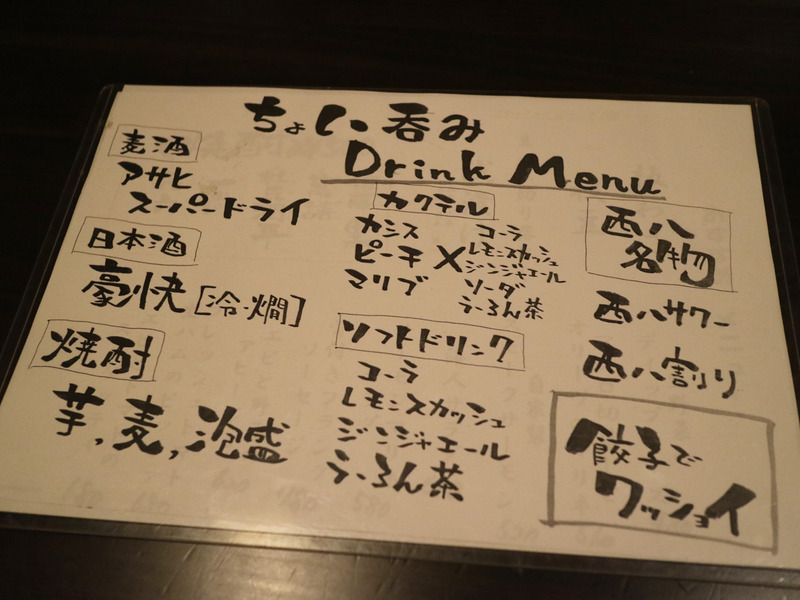 ちょい呑み
Drink Menu
麦酒
アサヒ
スーパードライ
日本酒
豪快 [冷・燗]
焼酎
芋, 麦, 泡盛
カクテル
カシス
ピーチ
マリブ
×
コーラ
レモンスカッシュ
ジンジャエール
ソーダ
うーろん茶
ソフトドリンク
コーラ
レモンスカッシュ
ジンジャエール
うーろん茶
西八
名物
西八サワー
西八割り
餃子で
ワッショイ